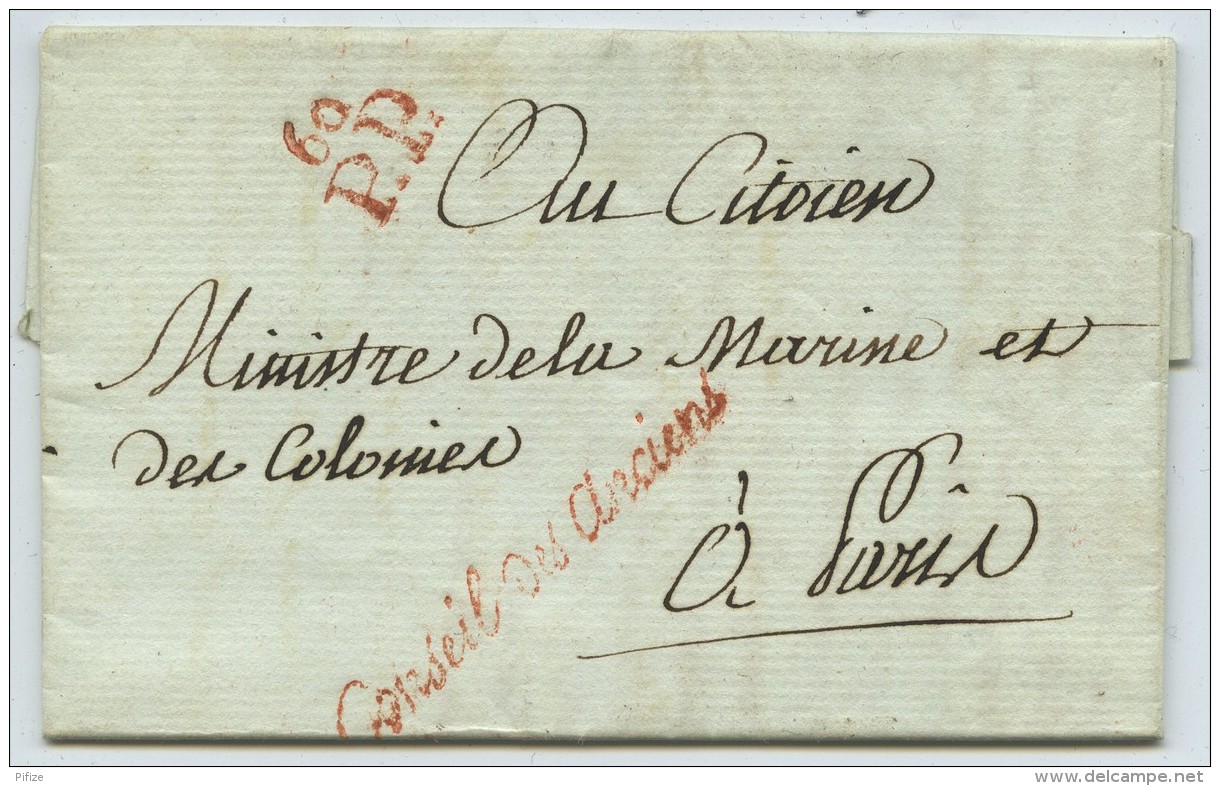 60
P.P.
Au Citoien
Ministre dela Marine et
des Colonies
Conseil des Anciens
à Paris
Pifize
delcampe.net